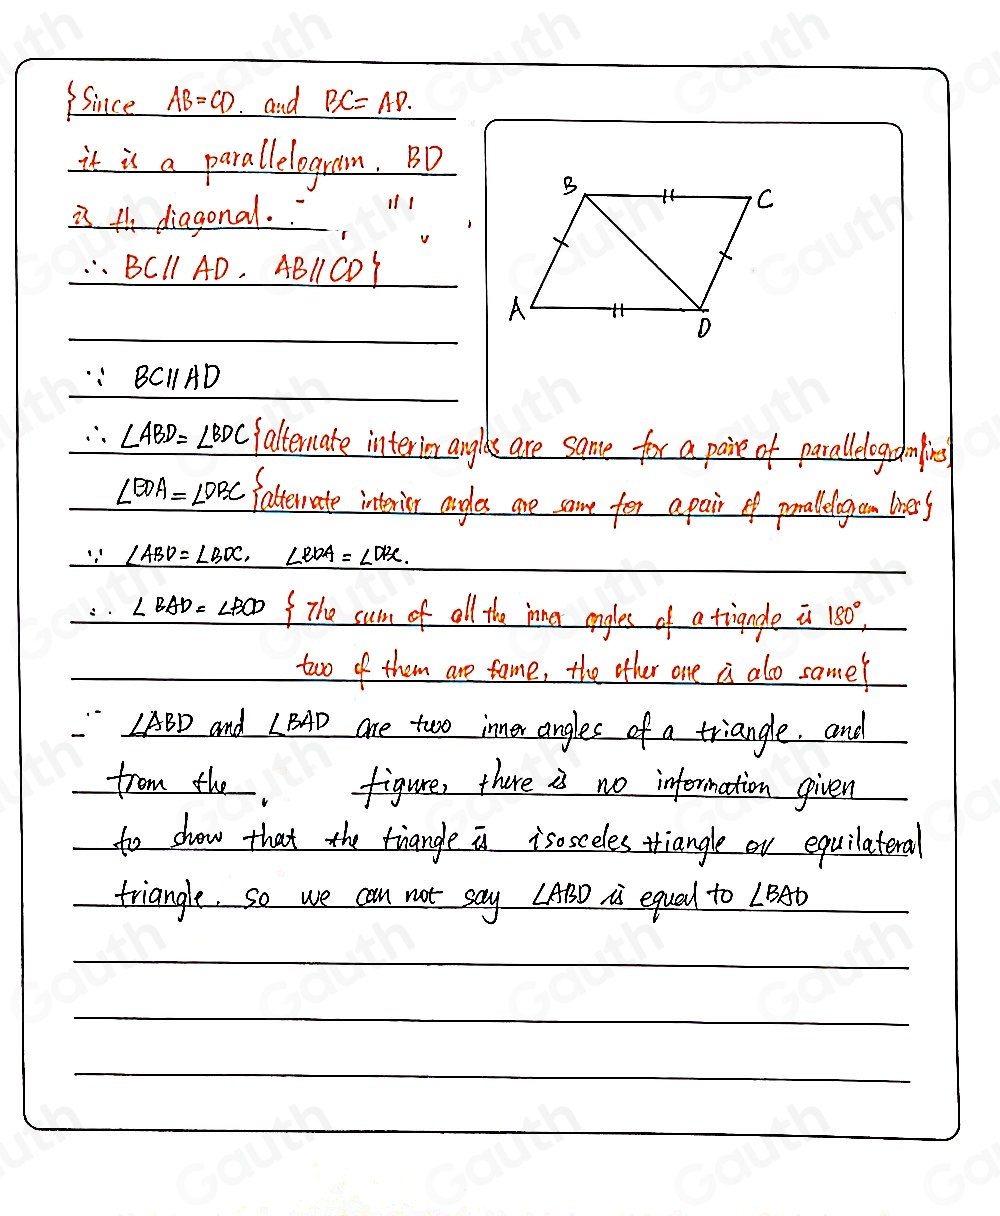 {Since AB=CD. and BC=AD.
it is a parallelogram. BD
is th diagonal.
∴ BC// AD, AB//CD}
B
C
A
D
∵ BC//AD
∴ ∠ABD=∠BDC {alternate interior angles are same for a paire of parallelogram lines}
∠BDA=∠DBC {alternate interior angles are same for a pair of parallelogram lines}
∵ ∠ABD=∠BDC, ∠BDA=∠DBC.
∴ ∠BAD=∠BCD {The sum of all the inner angles of a triangle is 180°,
two of them are same, the other one is also same}
∵ ∠ABD and ∠BAD are two inner angles of a triangle. and
from the figure, there is no information given
to show that the triangle is isosceles triangle or equilateral
triangle. so we can not say ∠ABD is equal to ∠BAD
Gauth